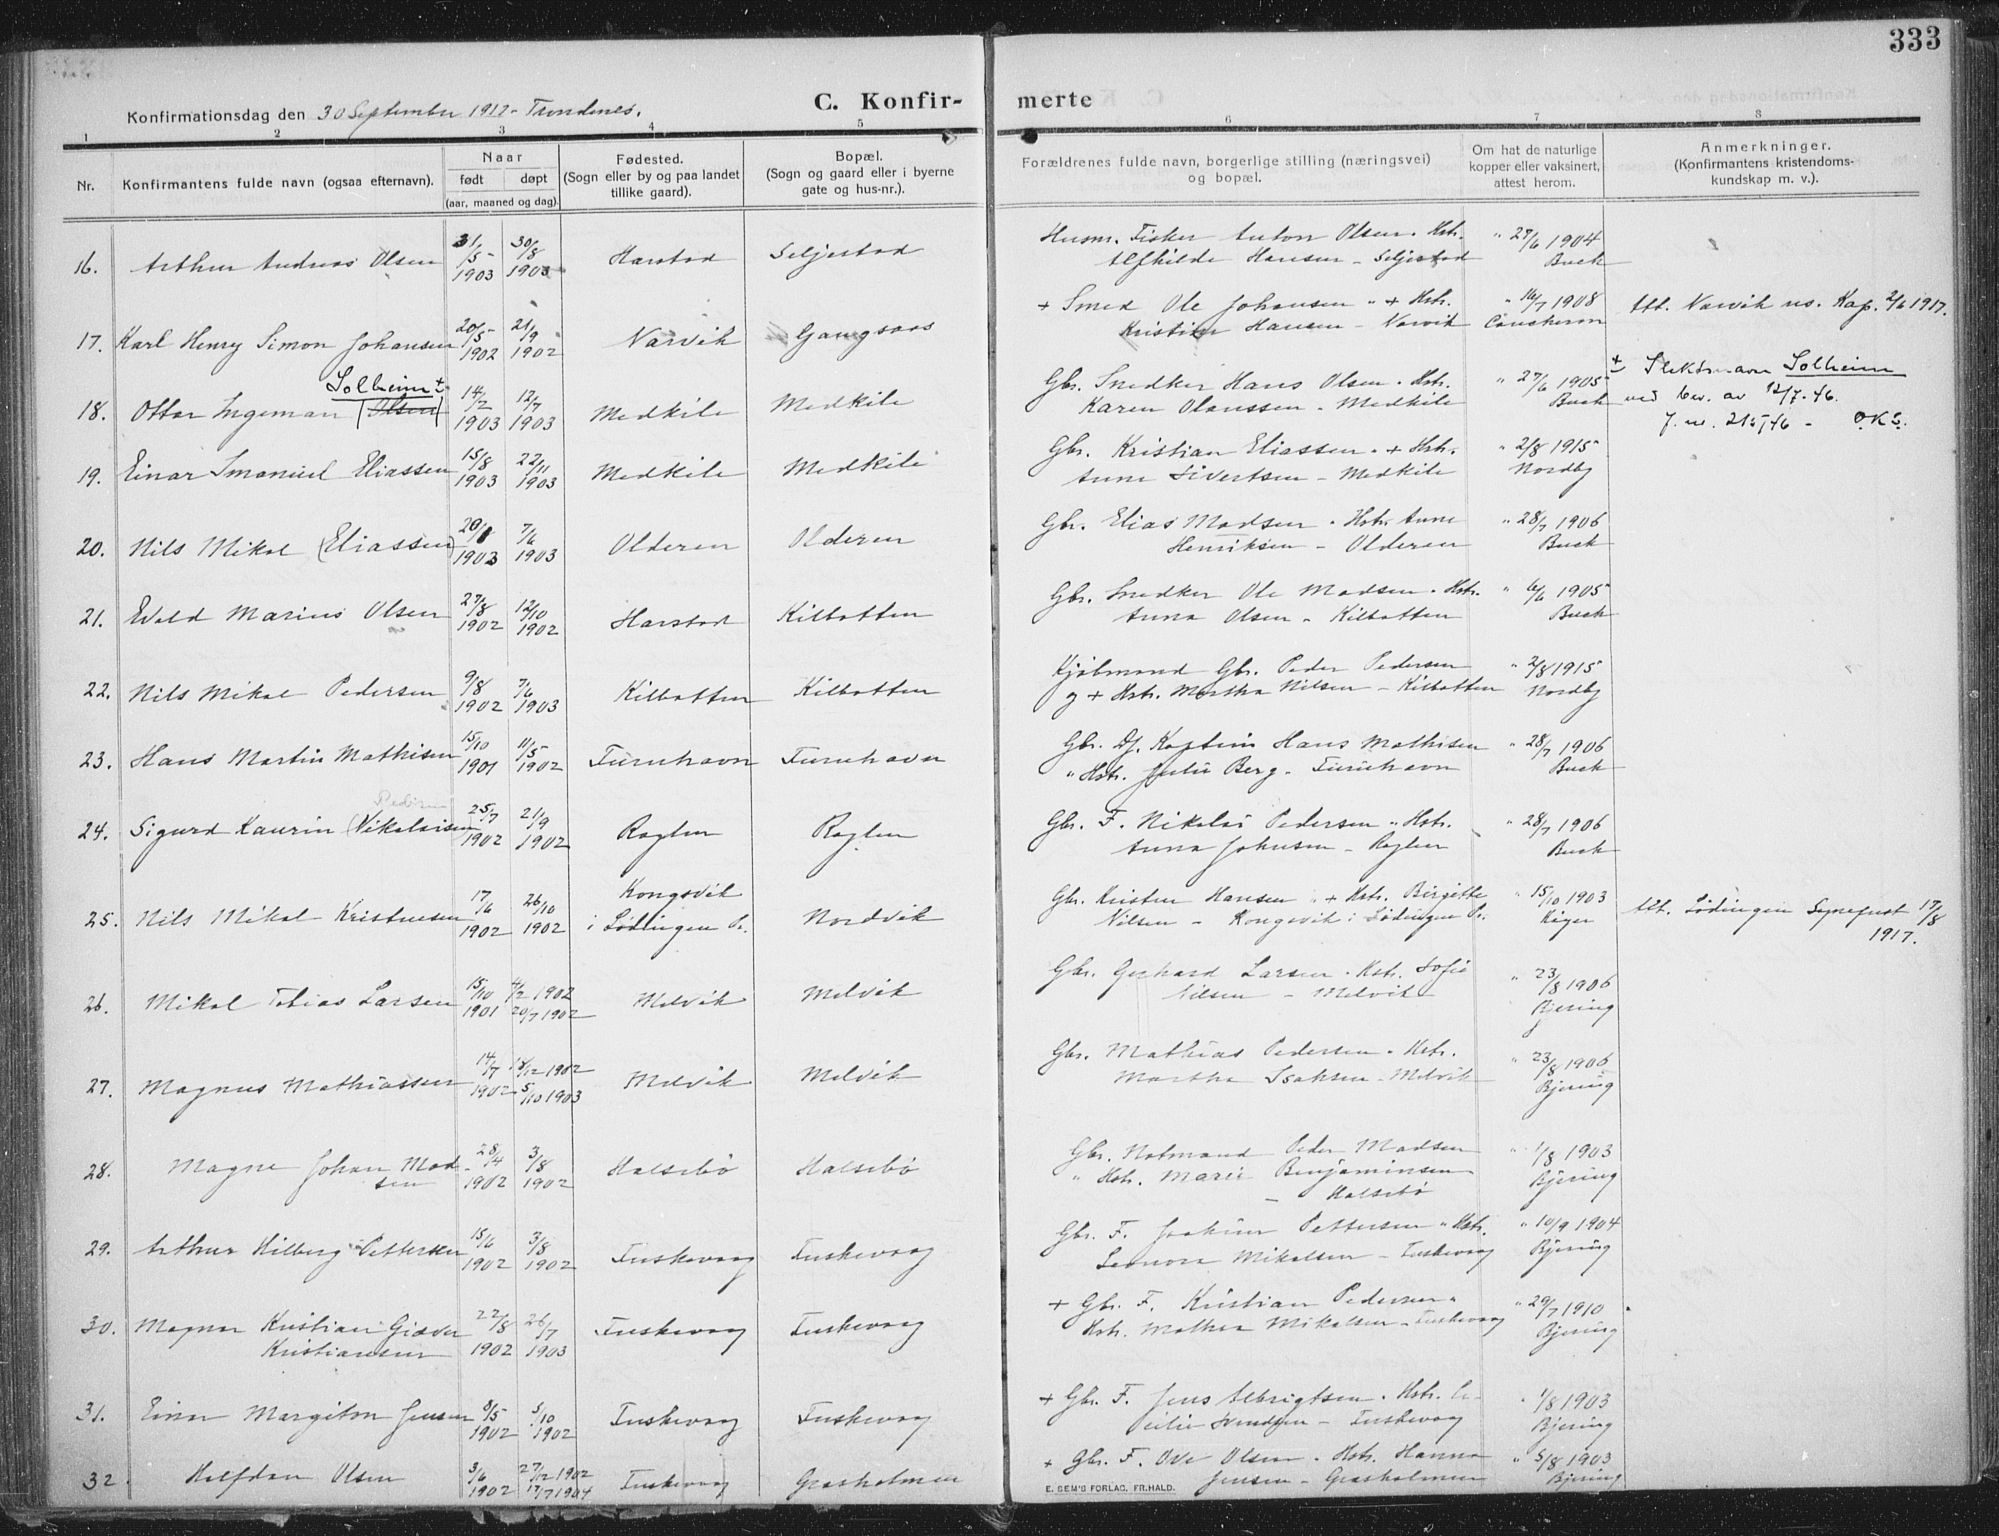 333
Konfirmationsdag den 30 September 1917 - Trondenes.
C. Konfir- merte
1 2 3 4 5 6 7 8
Nr.
Konfirmantens fulde navn (ogsaa efternavn).
Naar
født døpt
(aar, maaned og dag).
Fødested.
(Sogn eller by og paa landet
tillike gaard).
Bopæl.
(Sogn og gaard eller i byerne
gate og hus-nr.).
Forældrenes fulde navn, borgerlige stilling (næringsvei)
og bopæl.
Om hat de naturlige
kopper eller vaksinert,
attest herom.
Anmerkninger.
(Konfirmantens kristendoms-
kundskap m. v.).
16. Arthur Andreas Olsen 31/5 1903 30/8 1903 Harstad Seljestad Husm. Fisker Anton Olsen. Hstr. " 27/6 1904
Alfhilde Hansen - Seljestad Buck
17. Karl Henry Simon Johansen 20/5 1902 21/9 1902 Narvik Gangsaas + Smed Ole Johansen " + Hstr. " 16/7 1908 Att. Narvik res. Kap. 2/6 1917.
Kristine Hansen - Narvik
Solheim +
18. Ottar Ingeman (Olsen) 14/2 1903 12/7 1903 Medkile Medkile Gbr. Snedker Hans Olsen. Hstr. " 27/6 1905 + Slektsnavn Solheim
Karen Olaussen - Medkile Buck ved bev. av 12/7-46.
J. nr. 215/46 - O.K.S.
19. Einar Imanuel Eliassen 15/8 1903 22/11 1903 Medkile Medkile Gbr. Kristian Eliassen. + Hstr. " 2/8 1915
Anne Sivertsen - Medkile Nordby
20. Nils Mikal (Eliassen) 20/1 1903 7/6 1903 Olderen Olderen Gbr. Elias Madsen. Hstr. Anne " 28/7 1906
Henriksen - Olderen Buck
21. Evald Marius Olsen 27/8 1902 12/10 1902 Harstad Kilbotten Gbr. Snedker Ole Madsen. Hstr. " 6/6 1905
Anna Olsen - Kilbotten Buck
22. Nils Mikal Pedersen 9/8 1902 7/6 1903 Kilbotten Kilbotten Kjøbmand Gbr. Peder Pedersen " 2/8 1915
og + Hstr. Martha Nilsen - Kilbotten Nordby
23. Hans Martin Mathisen 15/10 1901 11/5 1902 Furuhavn Furuhavn Gbr. Df. Kaptein Hans Mathisen " 28/7 1906
" Hstr. Julie Berg - Furuhavn Buck
24. Sigurd Kaurin (Nikolaisen 25/7 1902 21/9 1902 Roglen Roglen Gbr. F. Nikolai Pedersen " Hstr. " 28/7 1906
Anna Johnsen - Roglen Buck
25. Nils Mikal Kristensen 17/6 1902 26/10 1902 Kongsvik Nordvik Gbr. Kristen Hansen " + Hstr. Birgitte " 15/10 1903 Att. Lødingen Sogneprest 17/8
i Lødingen Pr. Nilsen - Kongsvik i Lødingen Pr. 1917.
26. Mikal Tobias Larsen 15/10 1901 4/2 1902 20/7 1902 Melvik Melvik Gbr. Gerhard Larsen. Hstr. Sofie " 23/8 1906
Nilsen - Melvik Bjering
27. Magnus Mathiassen 14/7 1902 18/12 1902 5/10 1903 Melvik Melvik Gbr. Mathias Pedersen. Hstr. " 23/8 1906
Martha Isaksen - Melvik Bjering
28. Magne Johan Mad- 28/4 1902 3/8 1902 Halsebø Halsebø Gbr. Notmand Peder Madsen " 1/8 1903
sen " Hstr. Marie Benjaminsen Bjering
- Halsebø
29. Arthur Hilberg Pettersen 15/6 1902 3/8 1902 Fuskevaag Fuskevaag Gbr. F. Joakim Pettersen " Hstr. " 10/9 1904
Leonora Mikalsen - Fuskevaag Bjering
30. Magnar Kristian Giæver 22/8 1902 26/7 1903 Fuskevaag Fuskevaag + Gbr. F. Kristian Pedersen. " 29/7 1910
Kristiansen Hstr. Mathea Mikalsen - Fuskevaag Bjering
31. Einar Margiton Jensen 8/5 1902 5/10 1902 Fuskevaag Fuskevaag + Gbr. F. Jens Albrigtsen. Hstr. Ce- " 1/8 1903
cilie Svendsen - Fuskevaag Bjering
32. Halfdan Olsen 3/6 1902 27/12 1902 17/7 1904 Fuskevaag Grasholmen + Gbr. F. Ove Olsen. Hstr. Hanna " 5/8 1903
Jensen - Grasholmen Bjering
E. SEM'S FORLAG, FR.HALD.